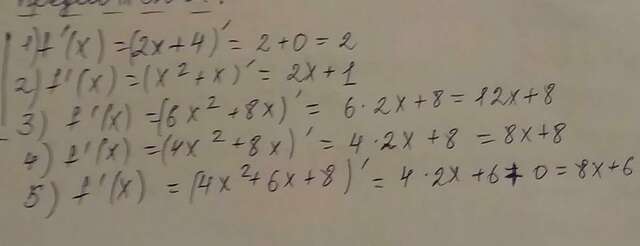 1) f'(x) = (2x+4)' = 2+0 = 2
2) f'(x) = (x²+x)' = 2x+1
3) f'(x) = (6x²+8x)' = 6·2x+8 = 12x+8
4) f'(x) = (4x²+8x)' = 4·2x+8 = 8x+8
5) f'(x) = (4x²+6x+8)' = 4·2x+6+0 = 8x+6